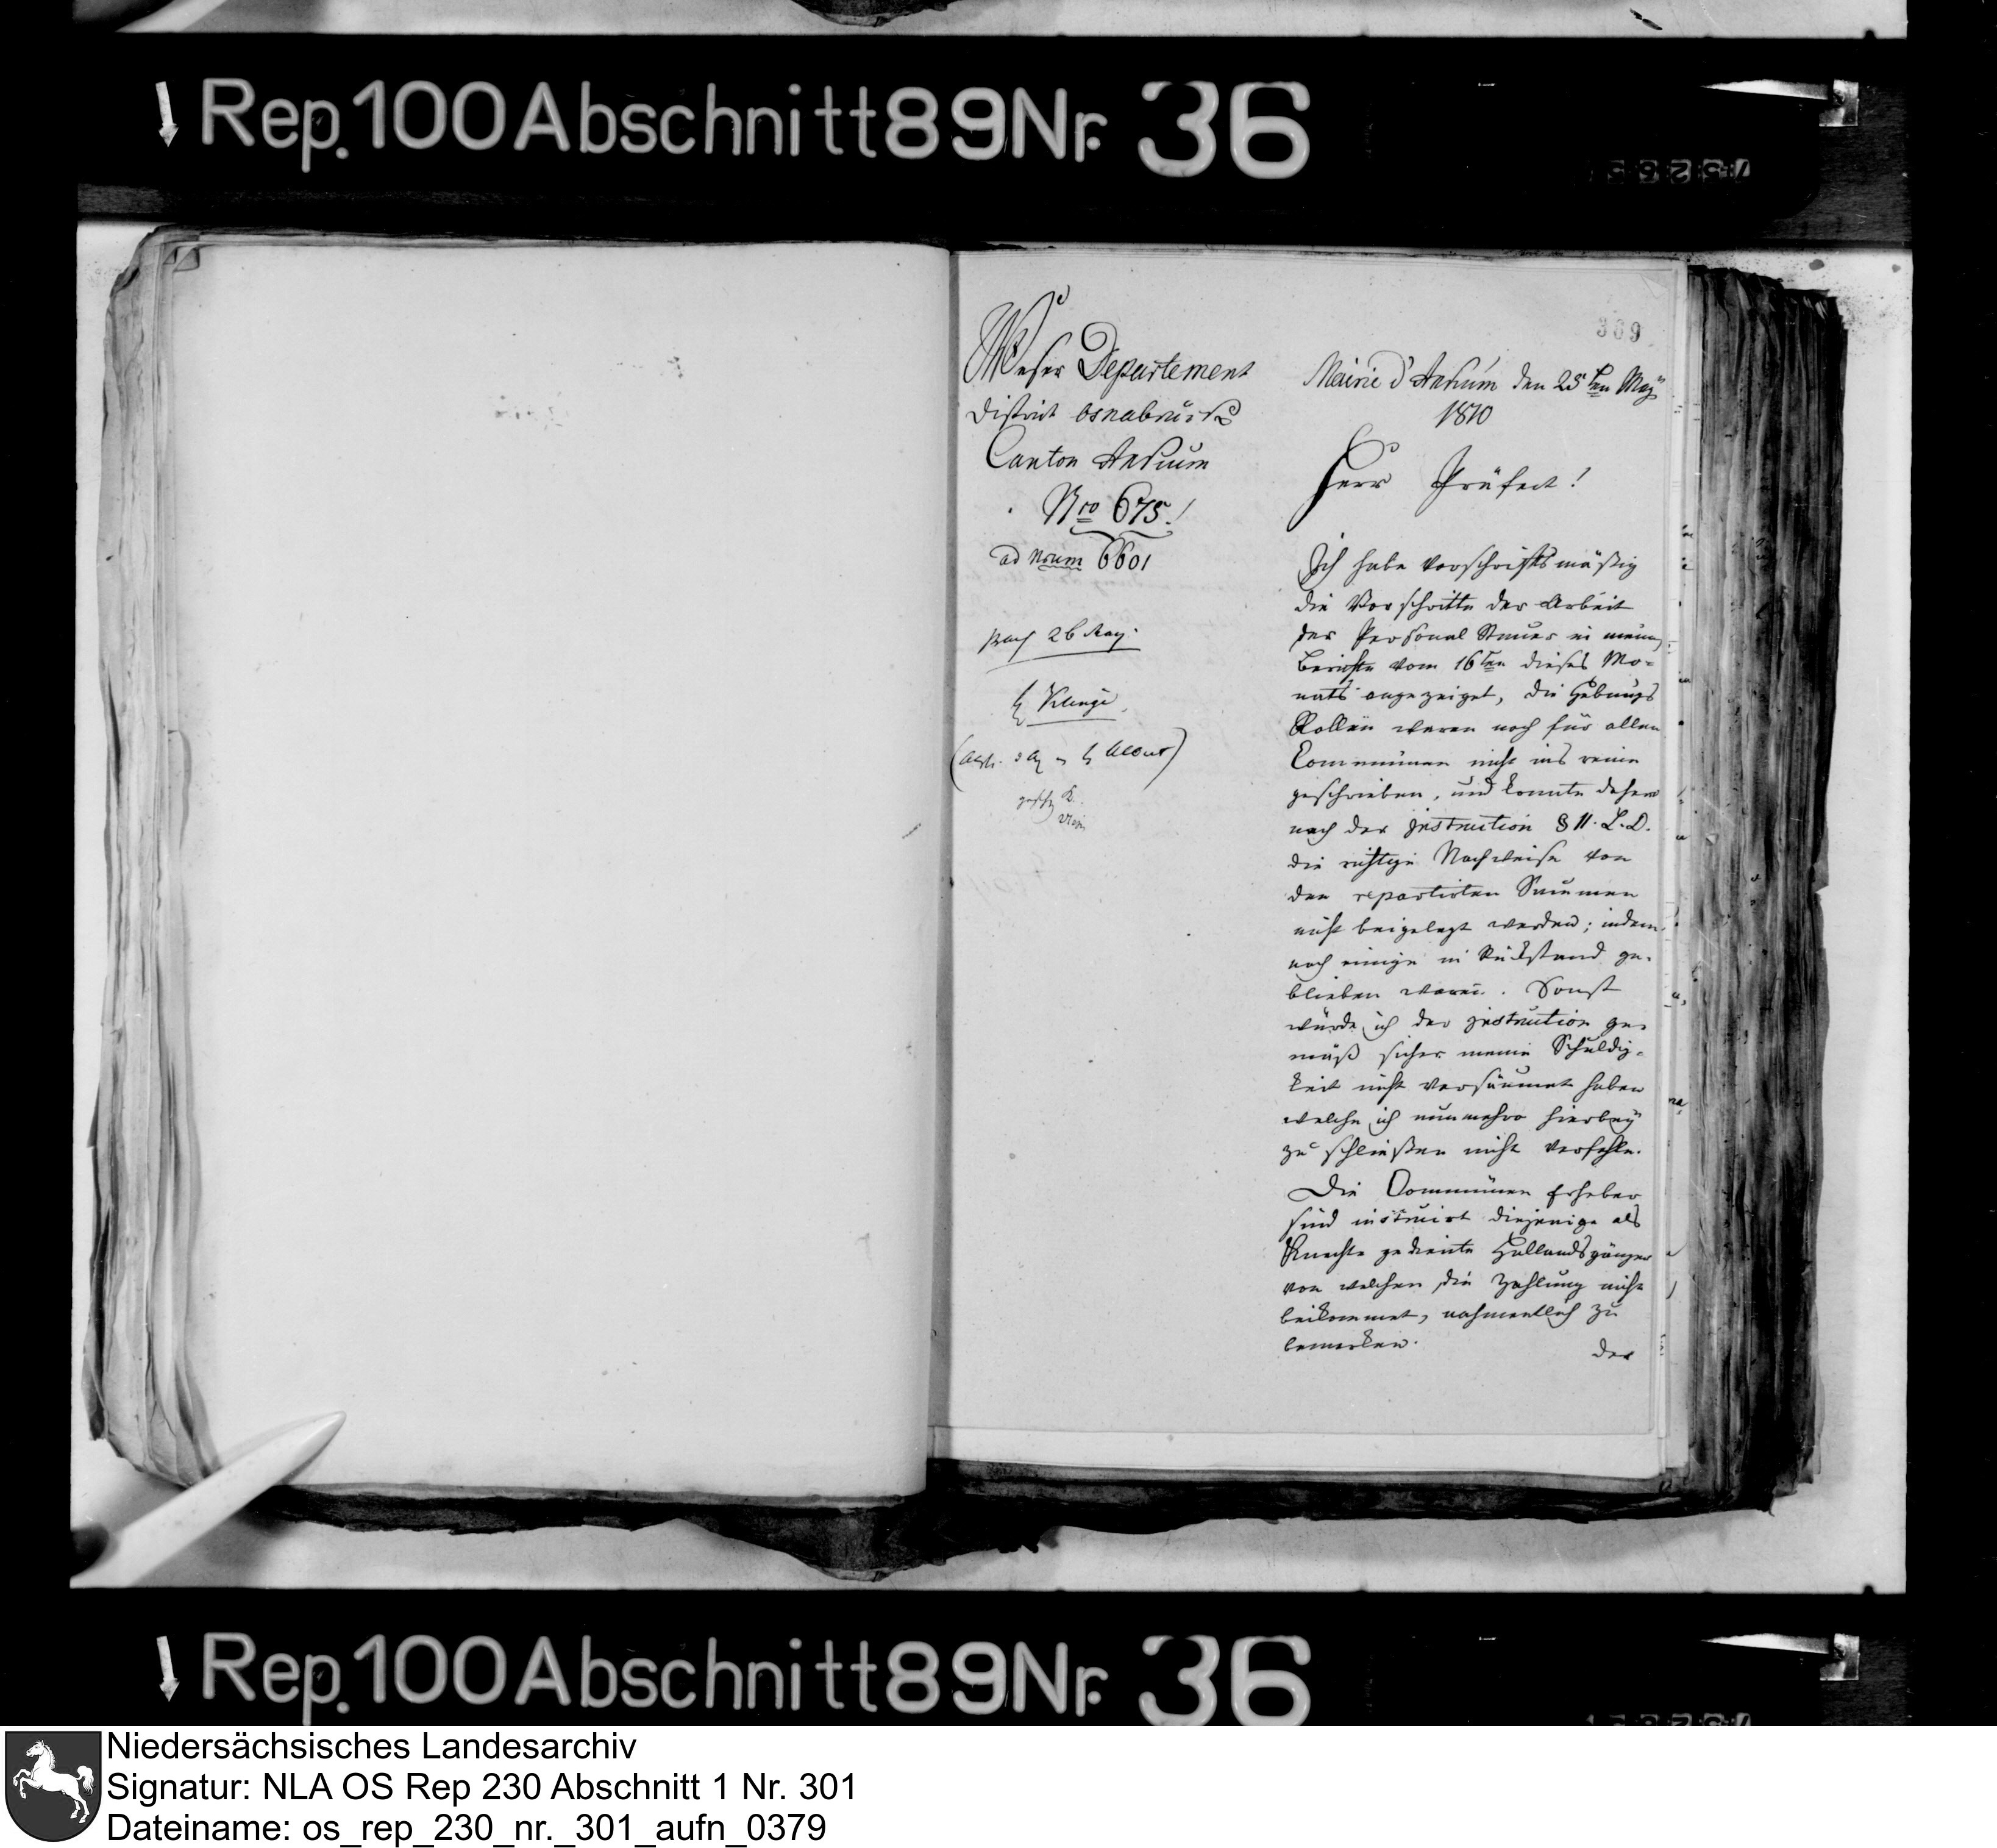 Rep. 100 Abschnitt 89 Nr. 36
369
Weser Departement
District Osnabrück
Canton Ankum
Nro 675.!
ad Nrum 6601
26 May.
Mairie d'Ankum den 25ten May
1810
Herr Präfect!
Ich habe vorschriftsmäßig
die Vorschritte der Arbeit
der Personal Steuer in meinen
Berichte vom 16ten dieses Mo-
nats angezeiget, die Hebungs
Rollen waren noch für allen
Communen nicht ins reine
geschrieben, und konnte daher
nach der Instruction § 11. L. D.
die richtige Nachweise von
den repartirten Summen
nicht beigelegt werden; indem
noch einige in Rückstand ge-
blieben waren. Sonst
würde ich der Instruction ge-
mäß sicher meine Schuldig-
keit nicht versäumet haben
welche ich nunmehro hierbey
zu schließen nicht verfehle.
Die Communen Erheber
sind instruirt diejenige als
Knechte gediente Hollandsgänger
von welchen die Zahlung nicht
beikommet, nahmentlich zu
bemerken.
der
Rep. 100 Abschnitt 89 Nr. 36
Niedersächsisches Landesarchiv
Signatur: NLA OS Rep 230 Abschnitt 1 Nr. 301
Dateiname: os_rep_230_nr._301_aufn_0379